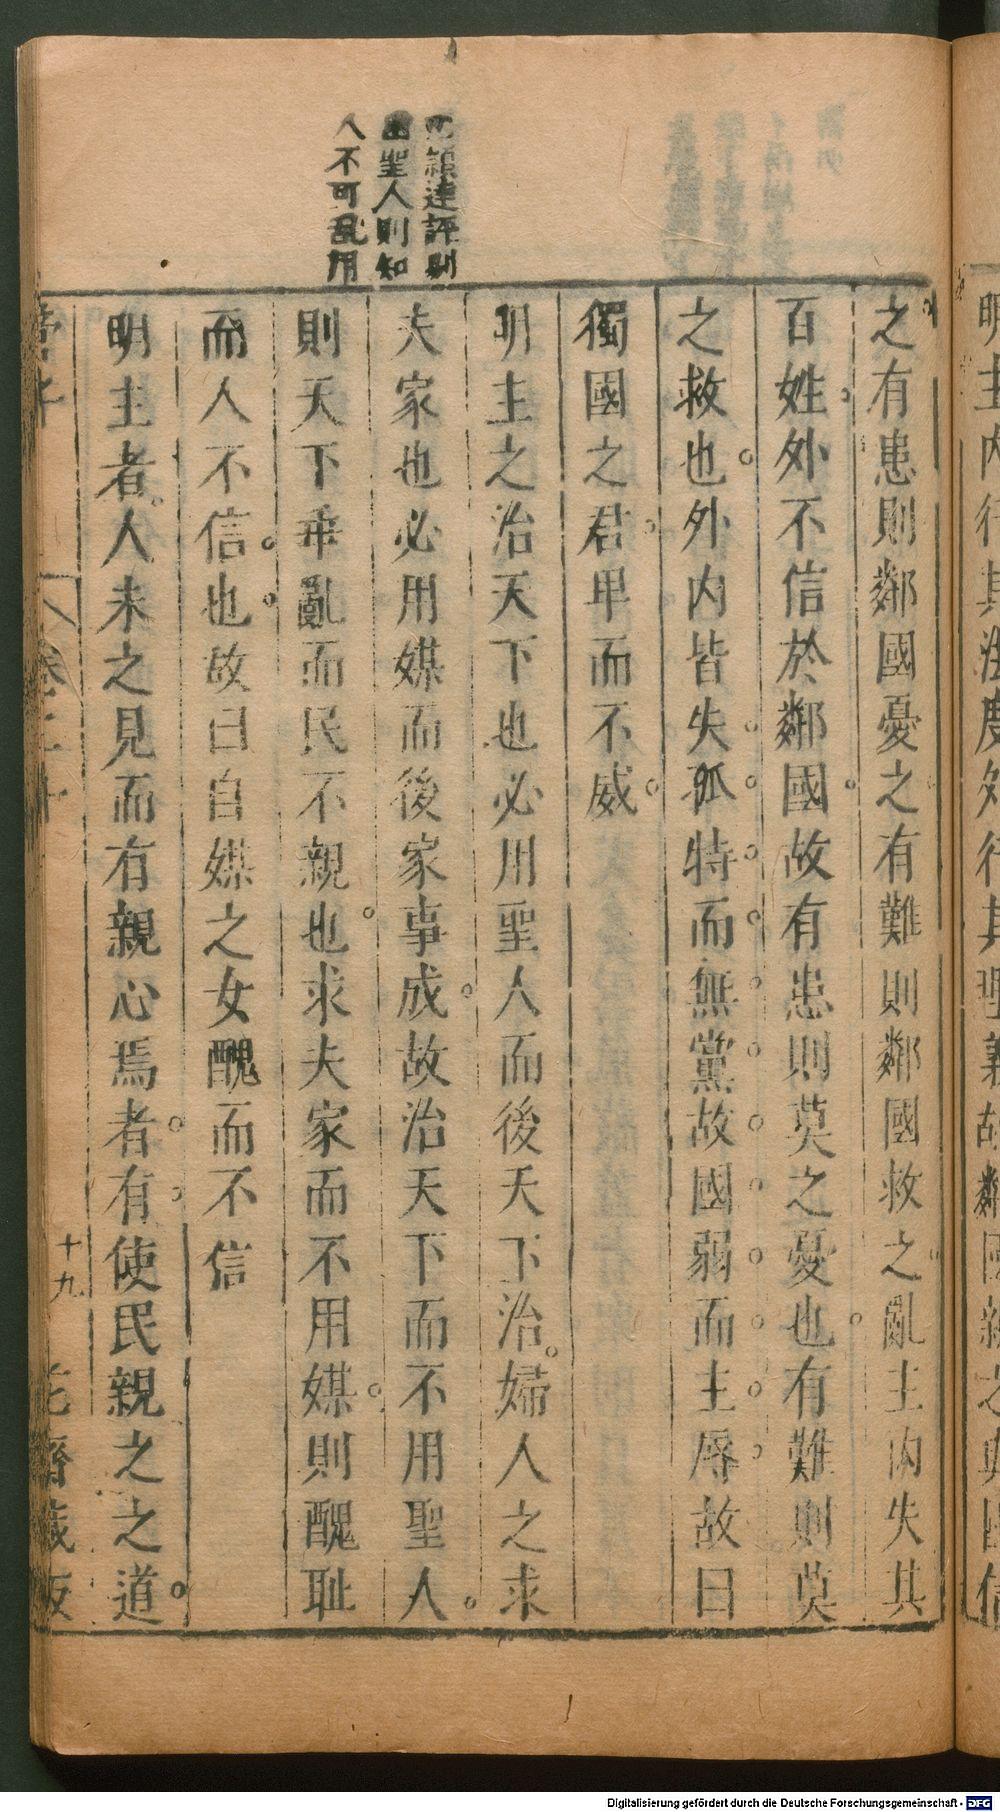 孔穎達評則
出聖人則知
人不可亂用
之有患則鄰國憂之有難則鄰國救之亂主內失其
百姓外不信於鄰國故有患則莫之憂也有難則莫
之救也外內皆失孤特而無黨故國弱而主辱故曰
獨國之君卑而不威
明主之治天下也必用聖人而後天下治婦人之求
夫家也必用媒而後家事成故治天下而不用聖人
則天下乖亂而民不親也求夫家而不用媒則醜恥
而人不信也故曰自媒之女醜而不信
明主者人未之見而有親心焉者有使民親之之道
卷二十
十九
花齋藏板
Digitalisierung gefördert durch die Deutsche Forschungsgemeinschaft - DFG